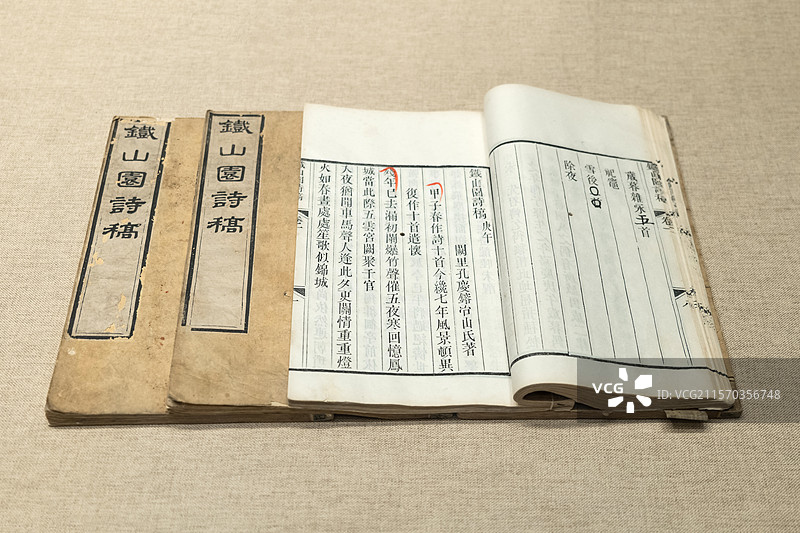 鐵山園詩稿
鐵山園詩稿
鐵山園詩稿 卷
歲暮雜詠五首
祀竈
雪後
除夜
鐵山園詩稿 庚午
闕里孔慶鎔冶山氏著
甲子春作詩十首今纔七年風景頓異
復作十首遣懷
年已去漏初闌爆竹聲催五夜寒回憶鳳
城當此際五雲宮闕聚千官
夜猶聞車馬聲人逢此夕更關情重重燈
火如春晝處處笙歌似錦城
VCG
ID: VCG211570356748